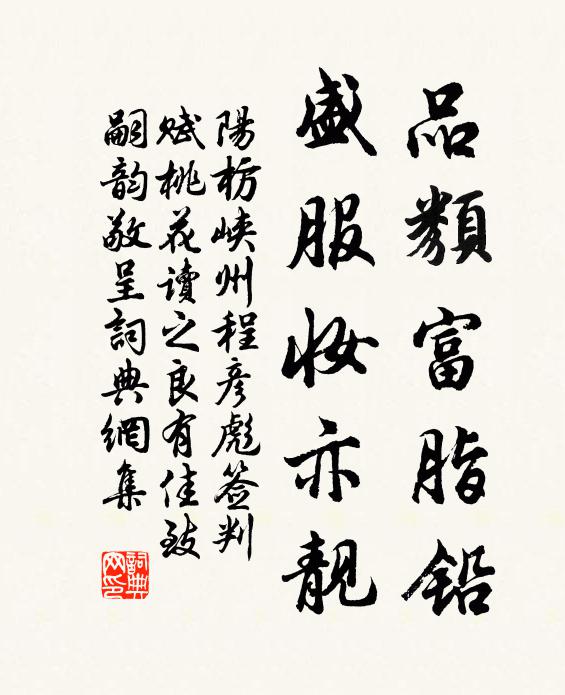 品類富脂鉛
盛服妝亦靚
陽枋峽州程彦彪簽判
賦桃花讀之良有佳致
嗣韵敬呈詞典網集
詞典
网印